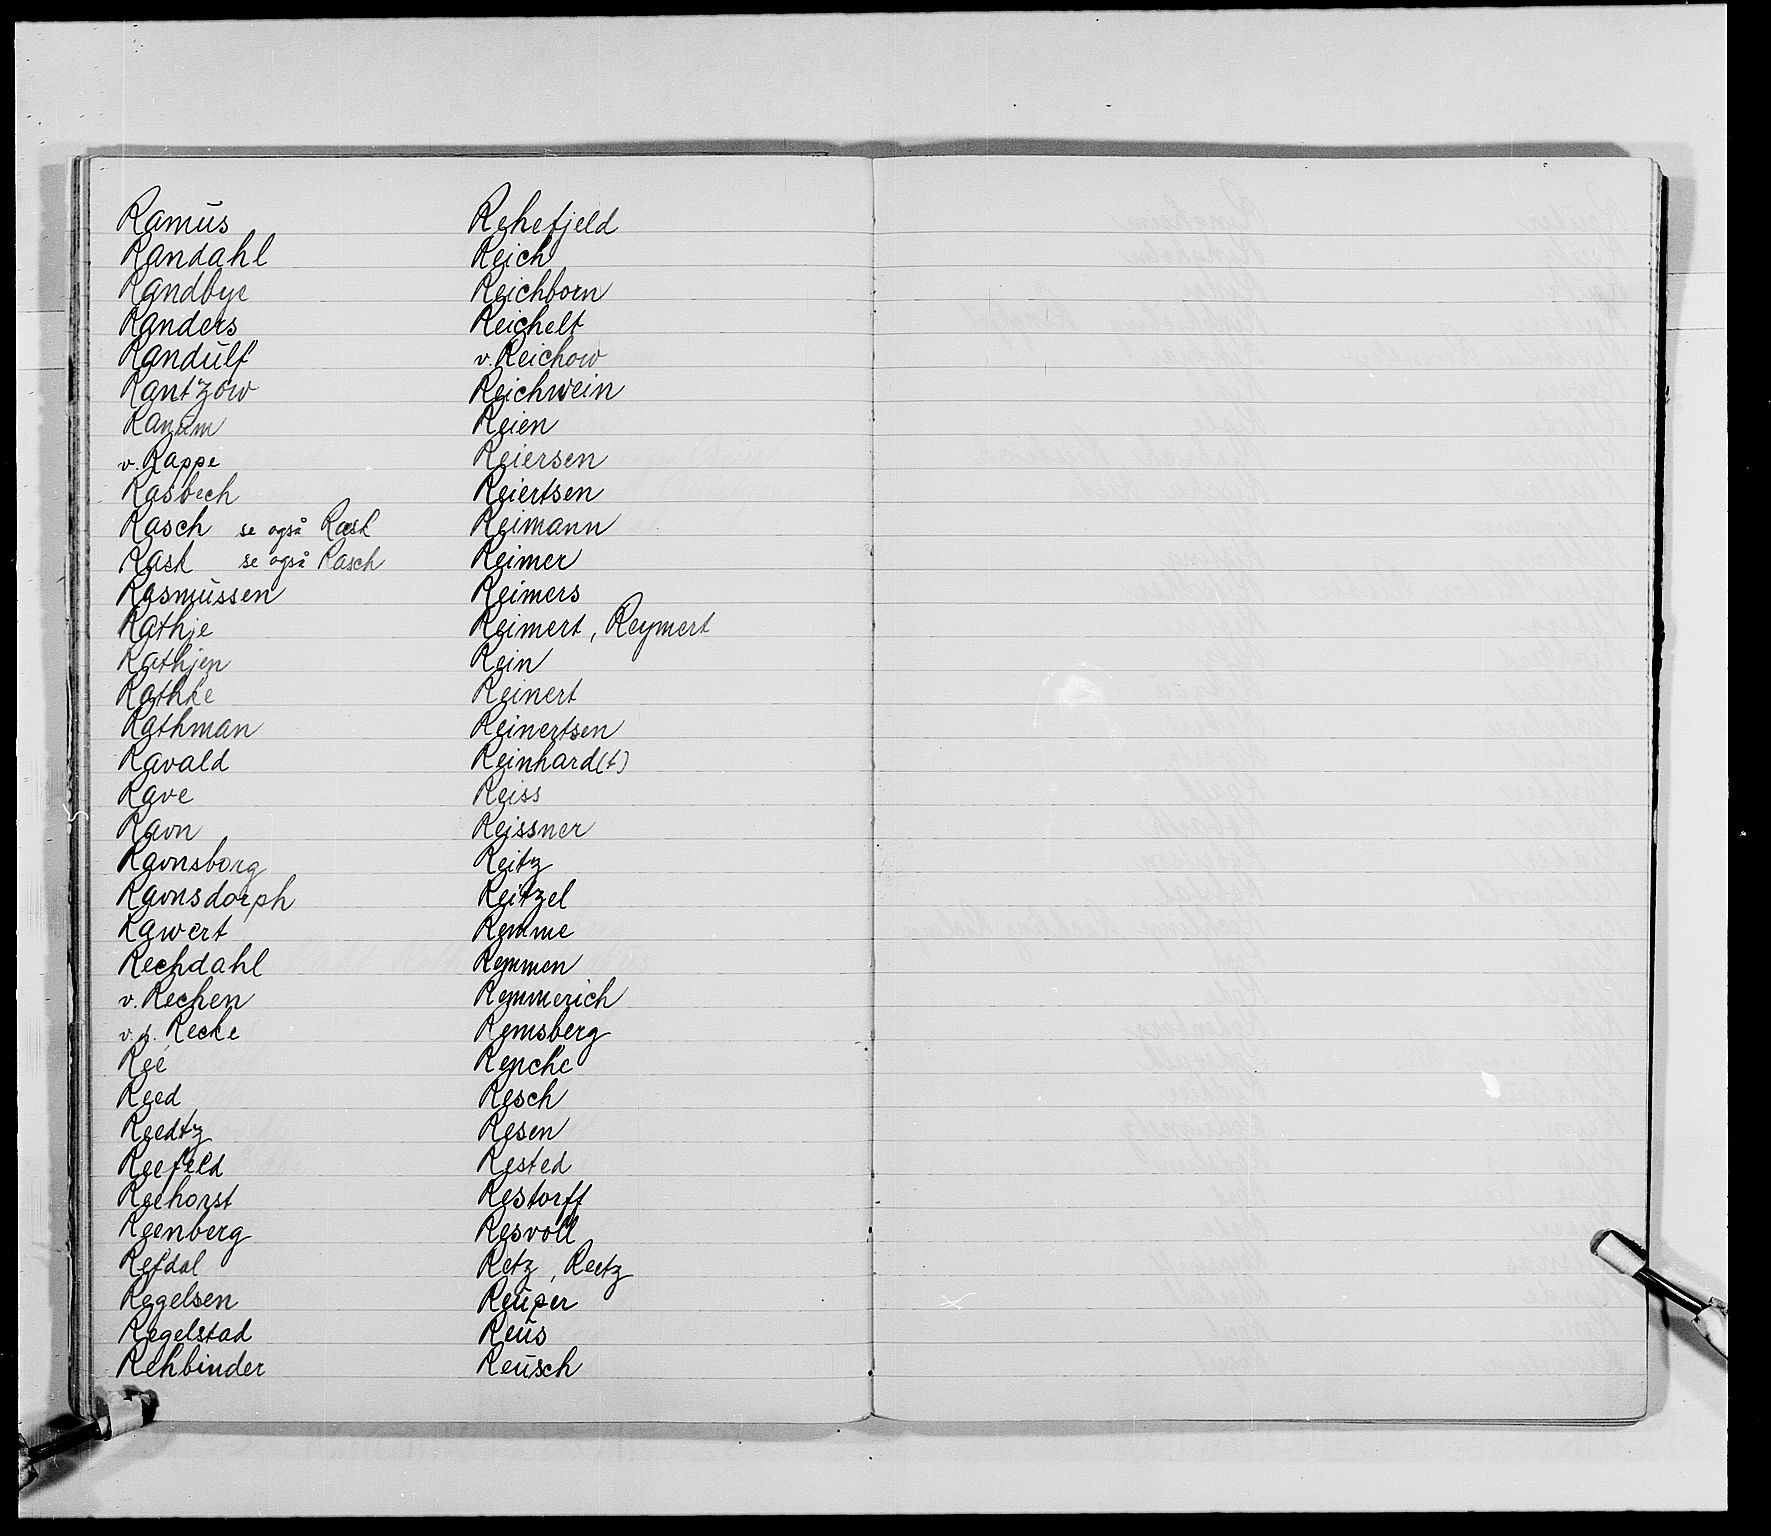 Ramus
Randahl
Randbye
Randers
Randulf
Rantzow
Ranum
v. Rappe
Rasbech
Rasch se også Rask
Rask se også Rasch
Rasmussen
Rathje
Rathjen
Rathke
Rathman
Ravald
Rave
Ravn
Ravnsborg
Ravnsdorph
Rawert
Rechdahl
v. Rechen
v. d. Recke
Ree
Reed
Reedtz
Reefeld
Reehorst
Reenberg
Refdal
Regelsen
Regelstad
Rehbinder
Rehefjeld
Reich
Reichborn
Reichelt
v. Reichow
Reichwein
Reien
Reiersen
Reiertsen
Reimann
Reimer
Reimers
Reimert, Reymert
Rein
Reinert
Reinertsen
Reinhard(t)
Reiss
Reissner
Reitz
Reitzel
Remme
Remmen
Remmerich
Remsberg
Renche
Resch
Resen
Rested
Restorff
Resvoll
Retz, Reetz
Reuper
Reus
Reusch